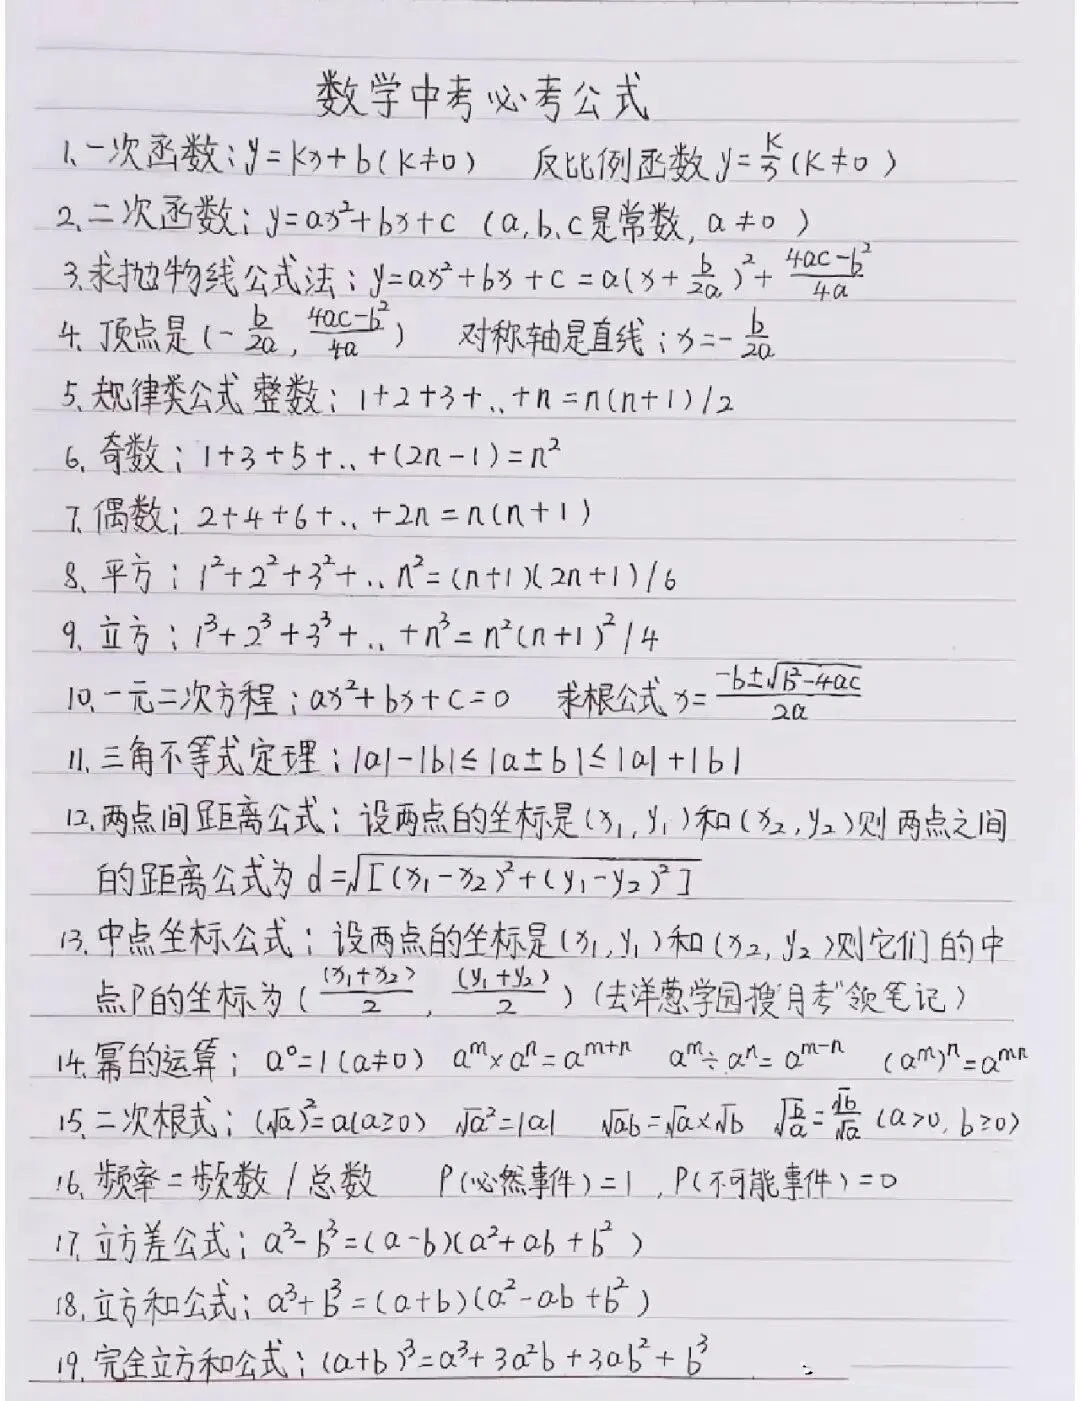 数学中考必考公式
1、一次函数：y=kx+b(k≠0)  反比例函数y=k/x(k≠0)
2、二次函数：y=ax²+bx+c (a,b、c是常数, a≠0)
3、求抛物线公式法：y=ax²+bx+c=a(x+b/2a)²+(4ac-b²)/4a
4、顶点是(-b/2a, (4ac-b²)/4a)  对称轴是直线：x=-b/2a
5、规律类公式 整数：1+2+3+..+n=n(n+1)/2
6、奇数：1+3+5+..+(2n-1)=n²
7、偶数：2+4+6+..+2n=n(n+1)
8、平方：1²+2²+3²+..n²=(n+1)(2n+1)/6
9、立方：1³+2³+3³+..+n³=n²(n+1)²/4
10、一元二次方程：ax²+bx+c=0  求根公式x=(-b±√(b²-4ac))/2a
11、三角不等式定理：|a|-|b|≤|a±b|≤|a|+|b|
12、两点间距离公式：设两点的坐标是(x₁,y₁)和(x₂,y₂)则两点之间
的距离公式为d=√[(x₁-x₂)²+(y₁-y₂)²]
13、中点坐标公式：设两点的坐标是(x₁,y₁)和(x₂,y₂)则它们的中
点P的坐标为((x₁+x₂)/2, (y₁+y₂)/2)(去洋葱学园搜"月考"领笔记)
14、幂的运算：a⁰=1(a≠0) aᵐ×aⁿ=aᵐ⁺ⁿ aᵐ÷aⁿ=aᵐ⁻ⁿ (aᵐ)ⁿ=aᵐⁿ
15、二次根式：(√a)²=a(a≥0) √a²=|a| √ab=√a×√b √(b/a)=√b/√a (a>0, b≥0)
16、频率=频数/总数  P(必然事件)=1,P(不可能事件)=0
17、立方差公式：a³-b³=(a-b)(a²+ab+b²)
18、立方和公式：a³+b³=(a+b)(a²-ab+b²)
19、完全立方和公式：(a+b)³=a³+3a²b+3ab²+b³